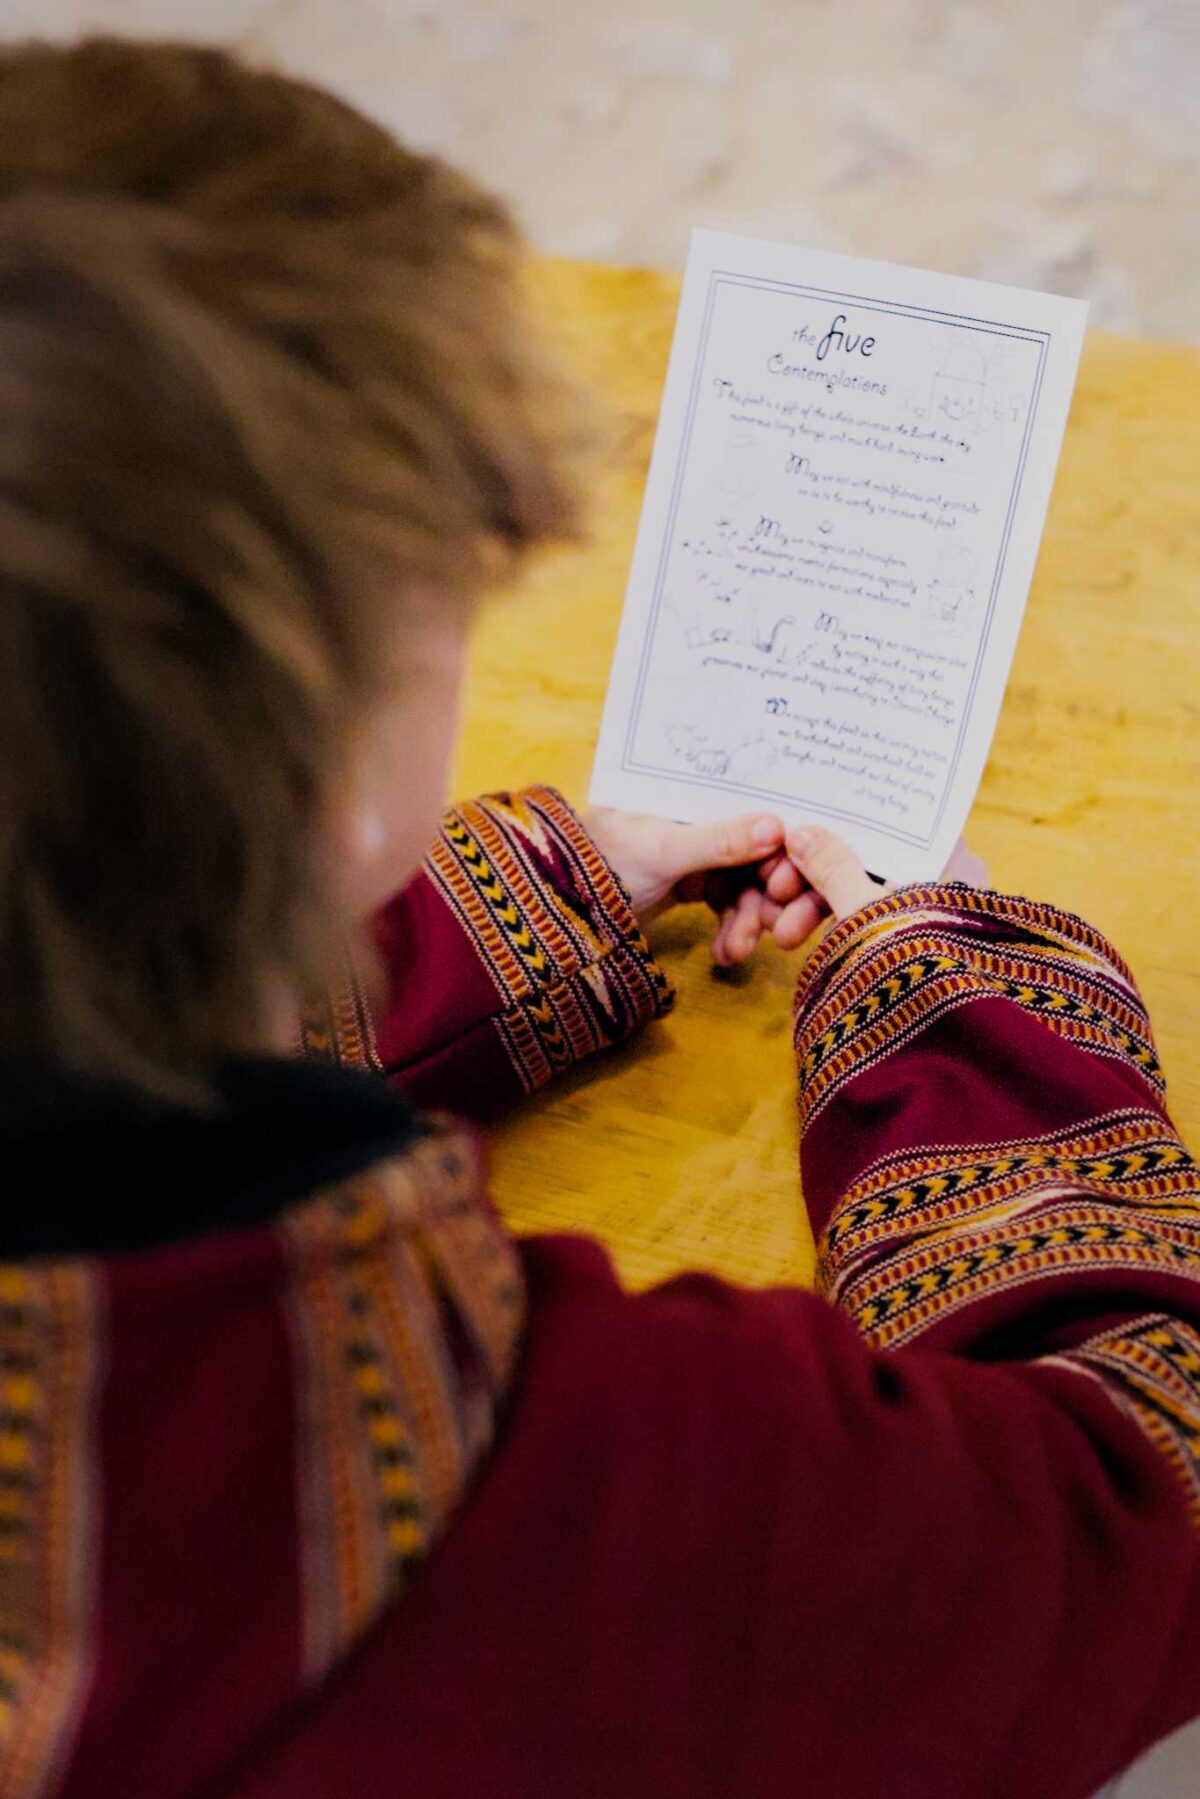 the five
Contemplations
This food is a gift of the whole universe, the Earth, the sky,
numerous living beings, and much hard, loving work.
May we eat with mindfulness and gratitude
so as to be worthy to receive this food.
May we recognize and transform
unwholesome mental formations, especially
our greed and learn to eat with moderation.
May we keep our compassion alive
by eating in such a way that
reduces the suffering of living beings,
preserves our planet, and stop contributing to Climate Change.
We accept this food so that we may nurture
our brotherhood and sisterhood, build our
Sangha, and nourish our ideal of serving
all living beings.